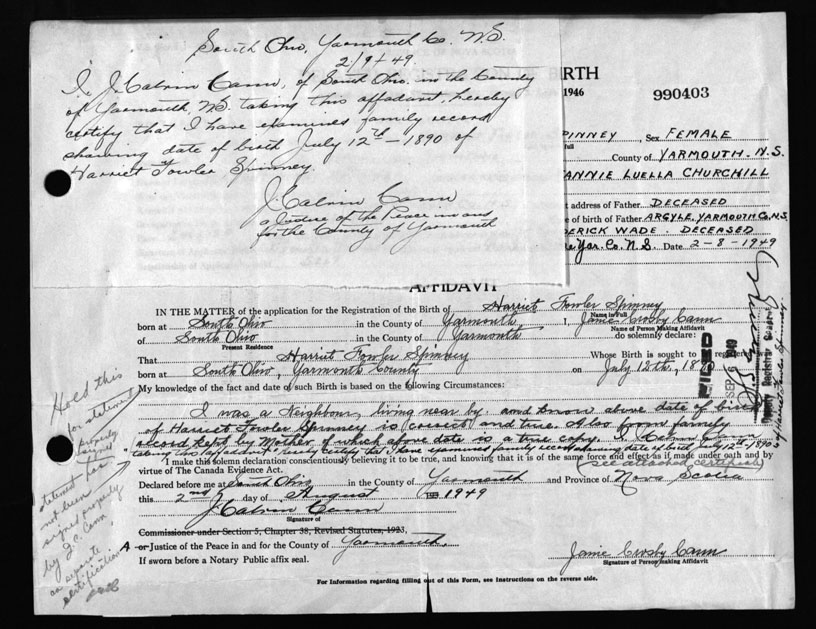 South Ohio, Yarmouth Co. N.S.
2/9/49.
I, J. Calvin Cann, of South Ohio, in the County
of Yarmouth, N.S. taking this affadavit, hereby
certify that I have examined family record
showing date of birth July 12th - 1890 of
Harriet Fowler Spinney
J. Calvin Cann
a Justice of the Peace in and
for the County of Yarmouth
BIRTH
1946
990403
PINNEY, Sex FEMALE
full
County of YARMOUTH. N.S.
ANNIE LUELLA CHURCHILL
t address of Father DECEASED
e of birth of Father ARGYLE, YARMOUTH CO. N.S.
DERICK WADE . DECEASED
Yar. Co. N.S. Date 2-8-1949
AFFIDAVIT
IN THE MATTER of the application for the Registration of the Birth of Harriet Fowler Spinney
Name in Full
born at South Ohio in the County of Yarmouth I, Janie Crosby Cann
Name of Person Making Affidavit
of South Ohio in the County of Yarmouth do solemnly declare:
Present Residence
That Harriet Fowler Spinney Whose Birth is sought to be registered
born at South Ohio, Yarmouth County on July 12th, 18
My knowledge of the fact and date of such Birth is based on the following Circumstances:
I was a Neighbour, living near by and know above date of birth
of Harriet Fowler Spinney is correct and true. Also from family
record kept by Mother of which above date is a true copy. I. Cann
"taking this affadavit" hereby certify that I have examined family record showing date of birth July 12th-1890
(see attached certificate
of Harriet Fowler Spinney
I make this solemn declaration conscientiously believing it to be true, and knowing that it is of the same force and effect as if made under oath and by
virtue of The Canada Evidence Act.
Declared before me at South Ohio in the County of Yarmouth and Province of Nova Scotia
this 2nd day of August 1949
J. Calvin Cann
Signature of
Commissioner under Section 5, Chapter 38, Revised Statutes, 1923.
A or Justice of the Peace in and for the County of Yarmouth.
If sworn before a Notary Public affix seal.
Janie Crosby Cann
Signature of Person Making Affidavit
For Information regarding filling out of this Form, see Instructions on the reverse side.
FILED
SEP 1949
Hold this
for statement
properly
signed
not been
signed properly
by J.C. Cann
on separate
certification